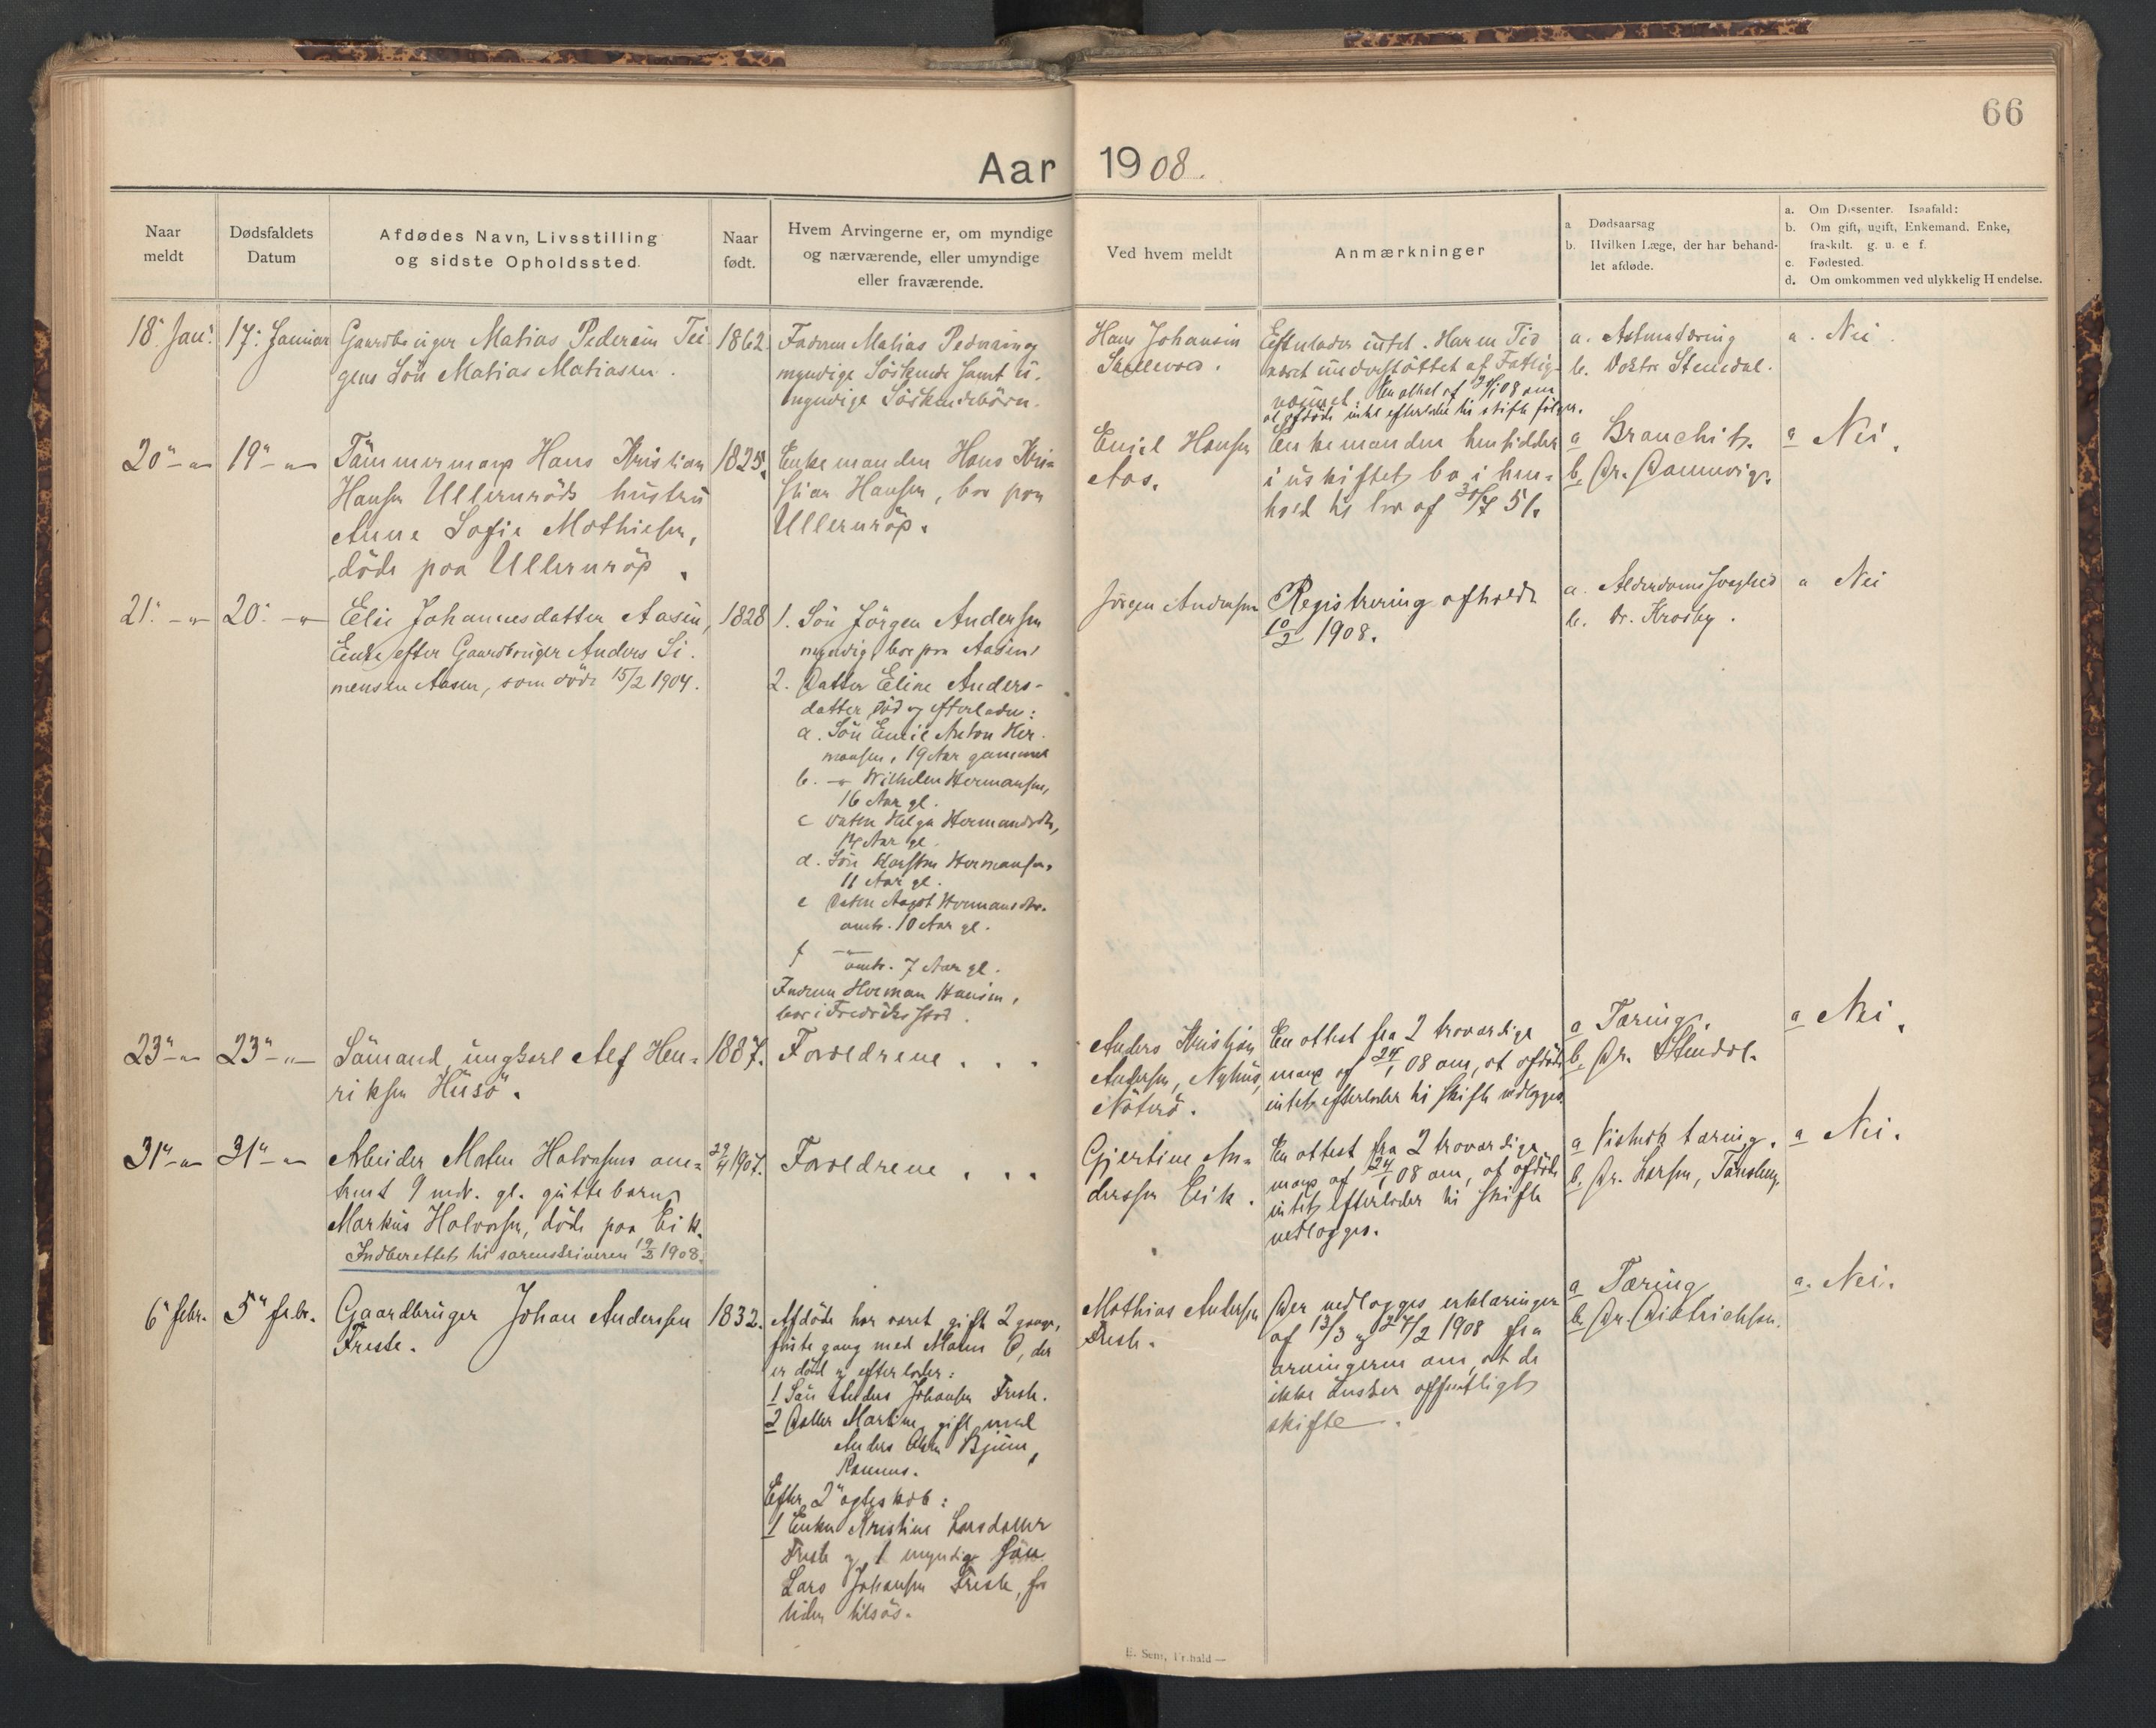 66
Aar 1908.
Naar
meldt
Dødsfaldets
Datum
Afdødes Navn, Livsstilling
og sidste Opholdssted.
Naar
født.
Hvem Arvingerne er, om myndige
og nærværende, eller umyndige
eller fraværende.
Ved hvem meldt
Anmærkninger
a Dødsaarsag
b. Hvilken Læge, der har behand-
let afdøde.
a. Om Dissenter. Isaafald:
b. Om gift, ugift, Enkemand, Enke,
fraskilt. g. u. e. f.
c. Fødested.
d. Om omkommen ved ulykkelig Hendelse.
18. Jan.
17. Januar
Gaardbruger Matias Pedersen Tei
gens Søn Matias Matiasen.
1862.
Faderen Matias Pedersen og
myndige Söskende samt u-
myndige Söskendebörn.
Hans Johansen
Efterlader intet. Har en Tid
været understöttet af Fattig-
væsenet. En attest af 08 om
at afdöde intet efterlader til skifte følger.
a.
b. Doktor Stenedal.
a. Nei.
20"
19"
Tömmermand Hans Kristian
Hansen Ullernröds hustru
Anne Sofie Mathiesen,
döde paa Ulleruröd.
1825.
Enkemanden Hans Kri-
stian Hansen, bor paa
Ulleruröd.
Emil Hansen
Aas.
Enkemanden hensidder
i uskiftet bo i hen-
hold til lov af 30/7 51.
a Bronchit.
b. Dr.
a Nei.
21.
20.
Elen Johannesdatter Aasen,
Enke efter Gaardbruger Anders Si-
mensen Aasen, som döde 15/2 1904.
1828
1. Sön Jörgen Andersen
myndig, bor paa Aasen.
2. Datter Eline Anders-
datter, död og efterlader:
a. Sön Emil Anton Her-
mansen, 19 Aar gammel
b. Wilhelm Hermansen,
16 Aar gl.
c Datter Helga Hermansdtr,
14 Aar gl.
d. Sön Karsten Hermansen,
11 Aar gl.
e Datter Aagot Hermansdtr.
omtr. 10 Aar gl.
f omtr. 7 Aar gl.
Faderen Herman Hansen,
bor i Fredriksstad.
Jörgen Andersen
Registrering afholdt
10/2 1908.
a. Alderdomssvaghed
b. Dr. Krosby.
a Nei
23"
23"
Sömand, ungkarl Alf Hen-
riksen Husö.
1887.
Forældrene . . .
Anders Kristian
Andersen, Nyhus,
Nöterö.
En attest fra 2 troværdige
mænd af 24/1 08 om, at afdöde
intet efterlader til skifte vedlægges.
a Tæring.
b. Dr. Stendal.
a Nei.
31"
31"
Arbeider Maten Halvorsens om-
trent 9 mdr. gl. guttebarn
Markus Halvorsen, döde paa Eik.
Indberettet til sorenskriveren 19/2 1908.
29/4 1907.
Forældrene . . .
Gjertine An-
dersen Eik.
En attest fra 2 troværdige
mænd af 24/1 08 om, at afdöde
intet efterlader til skifte
vedlægges.
a tæring.
b. Dr. Larsen, Tönsberg.
a Nei.
6" febr.
5" febr.
Gaardbruger Johan Anderssen
Freste.
1832.
Afdöde har været gift 2 gange,
förste gang med Maren O, der
er död og efterlader:
1 Sön Anders Johansen Freste.
2 Datter Martine, gift med
Anders Olsen Bjune,
Ramnes.
Efter 2" ægteskab:
1 Enken Kristine Larsdatter
Freste og 1 myndig sön
Lars Johansen Freste, for
tiden tilsös.
Mathias Andersen
Freste.
Der vedlægges erklæringer
af 13/3 og 27/2 1908 fra
arvingerne om, at de
ikke önsker offentligt
skifte.
a Tæring
b. Dr. Dietrichson.
a. Nei.
E. Sem, Fr.hald —